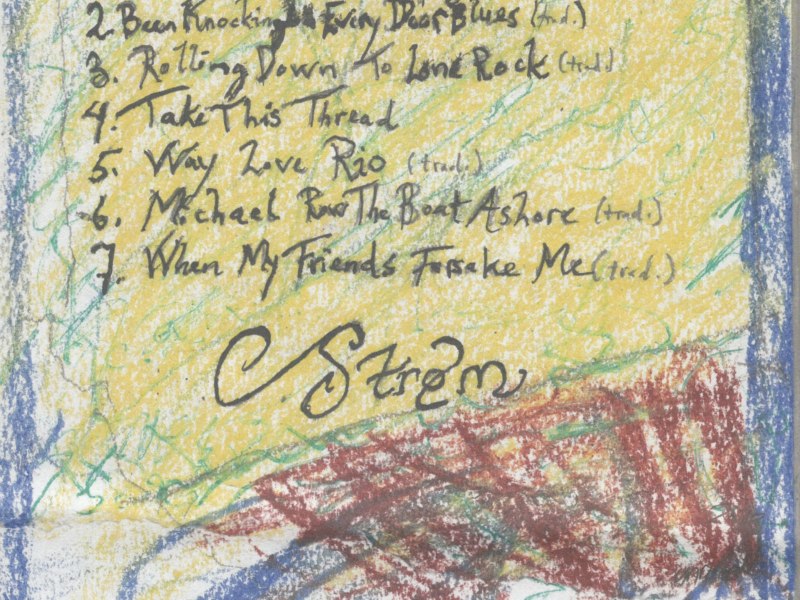 2. Been Knocking Every Door Blues (trad.)
3. Rolling Down To Lone Rock (trad.)
4. Take This Thread
5. Way Love Rio (trad.)
6. Michael Row The Boat Ashore (trad.)
7. When My Friends Forsake Me (trad.)
C. Strøm